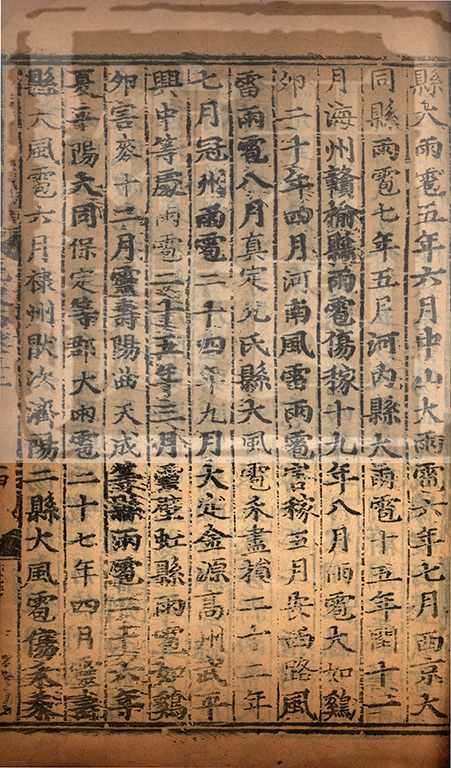 縣大雨雹五年六月中山大雨雹六年七月西京大
同縣雨雹七年五月河內縣大雨雹十五年閏十二
月海州贛榆縣雨雹傷稼十九年八月雨雹大如鷄
卵二十年四月河南風雷雨雹害稼五月安西路風
雷雨雹八月真定元氏縣大風雹禾盡損二十二年
七月冠州雨雹二十四年九月大定金源高州武平
興中等處雨雹二十五年三月靈壁虹縣雨雹如鷄
卵害麥十二月靈壽陽曲天成等縣雨雹二十六年
夏平陽大同保定等郡大雨雹二十七年四月靈壽
縣大風雹六月棣州厭次濟陽二縣大風雹傷禾黍